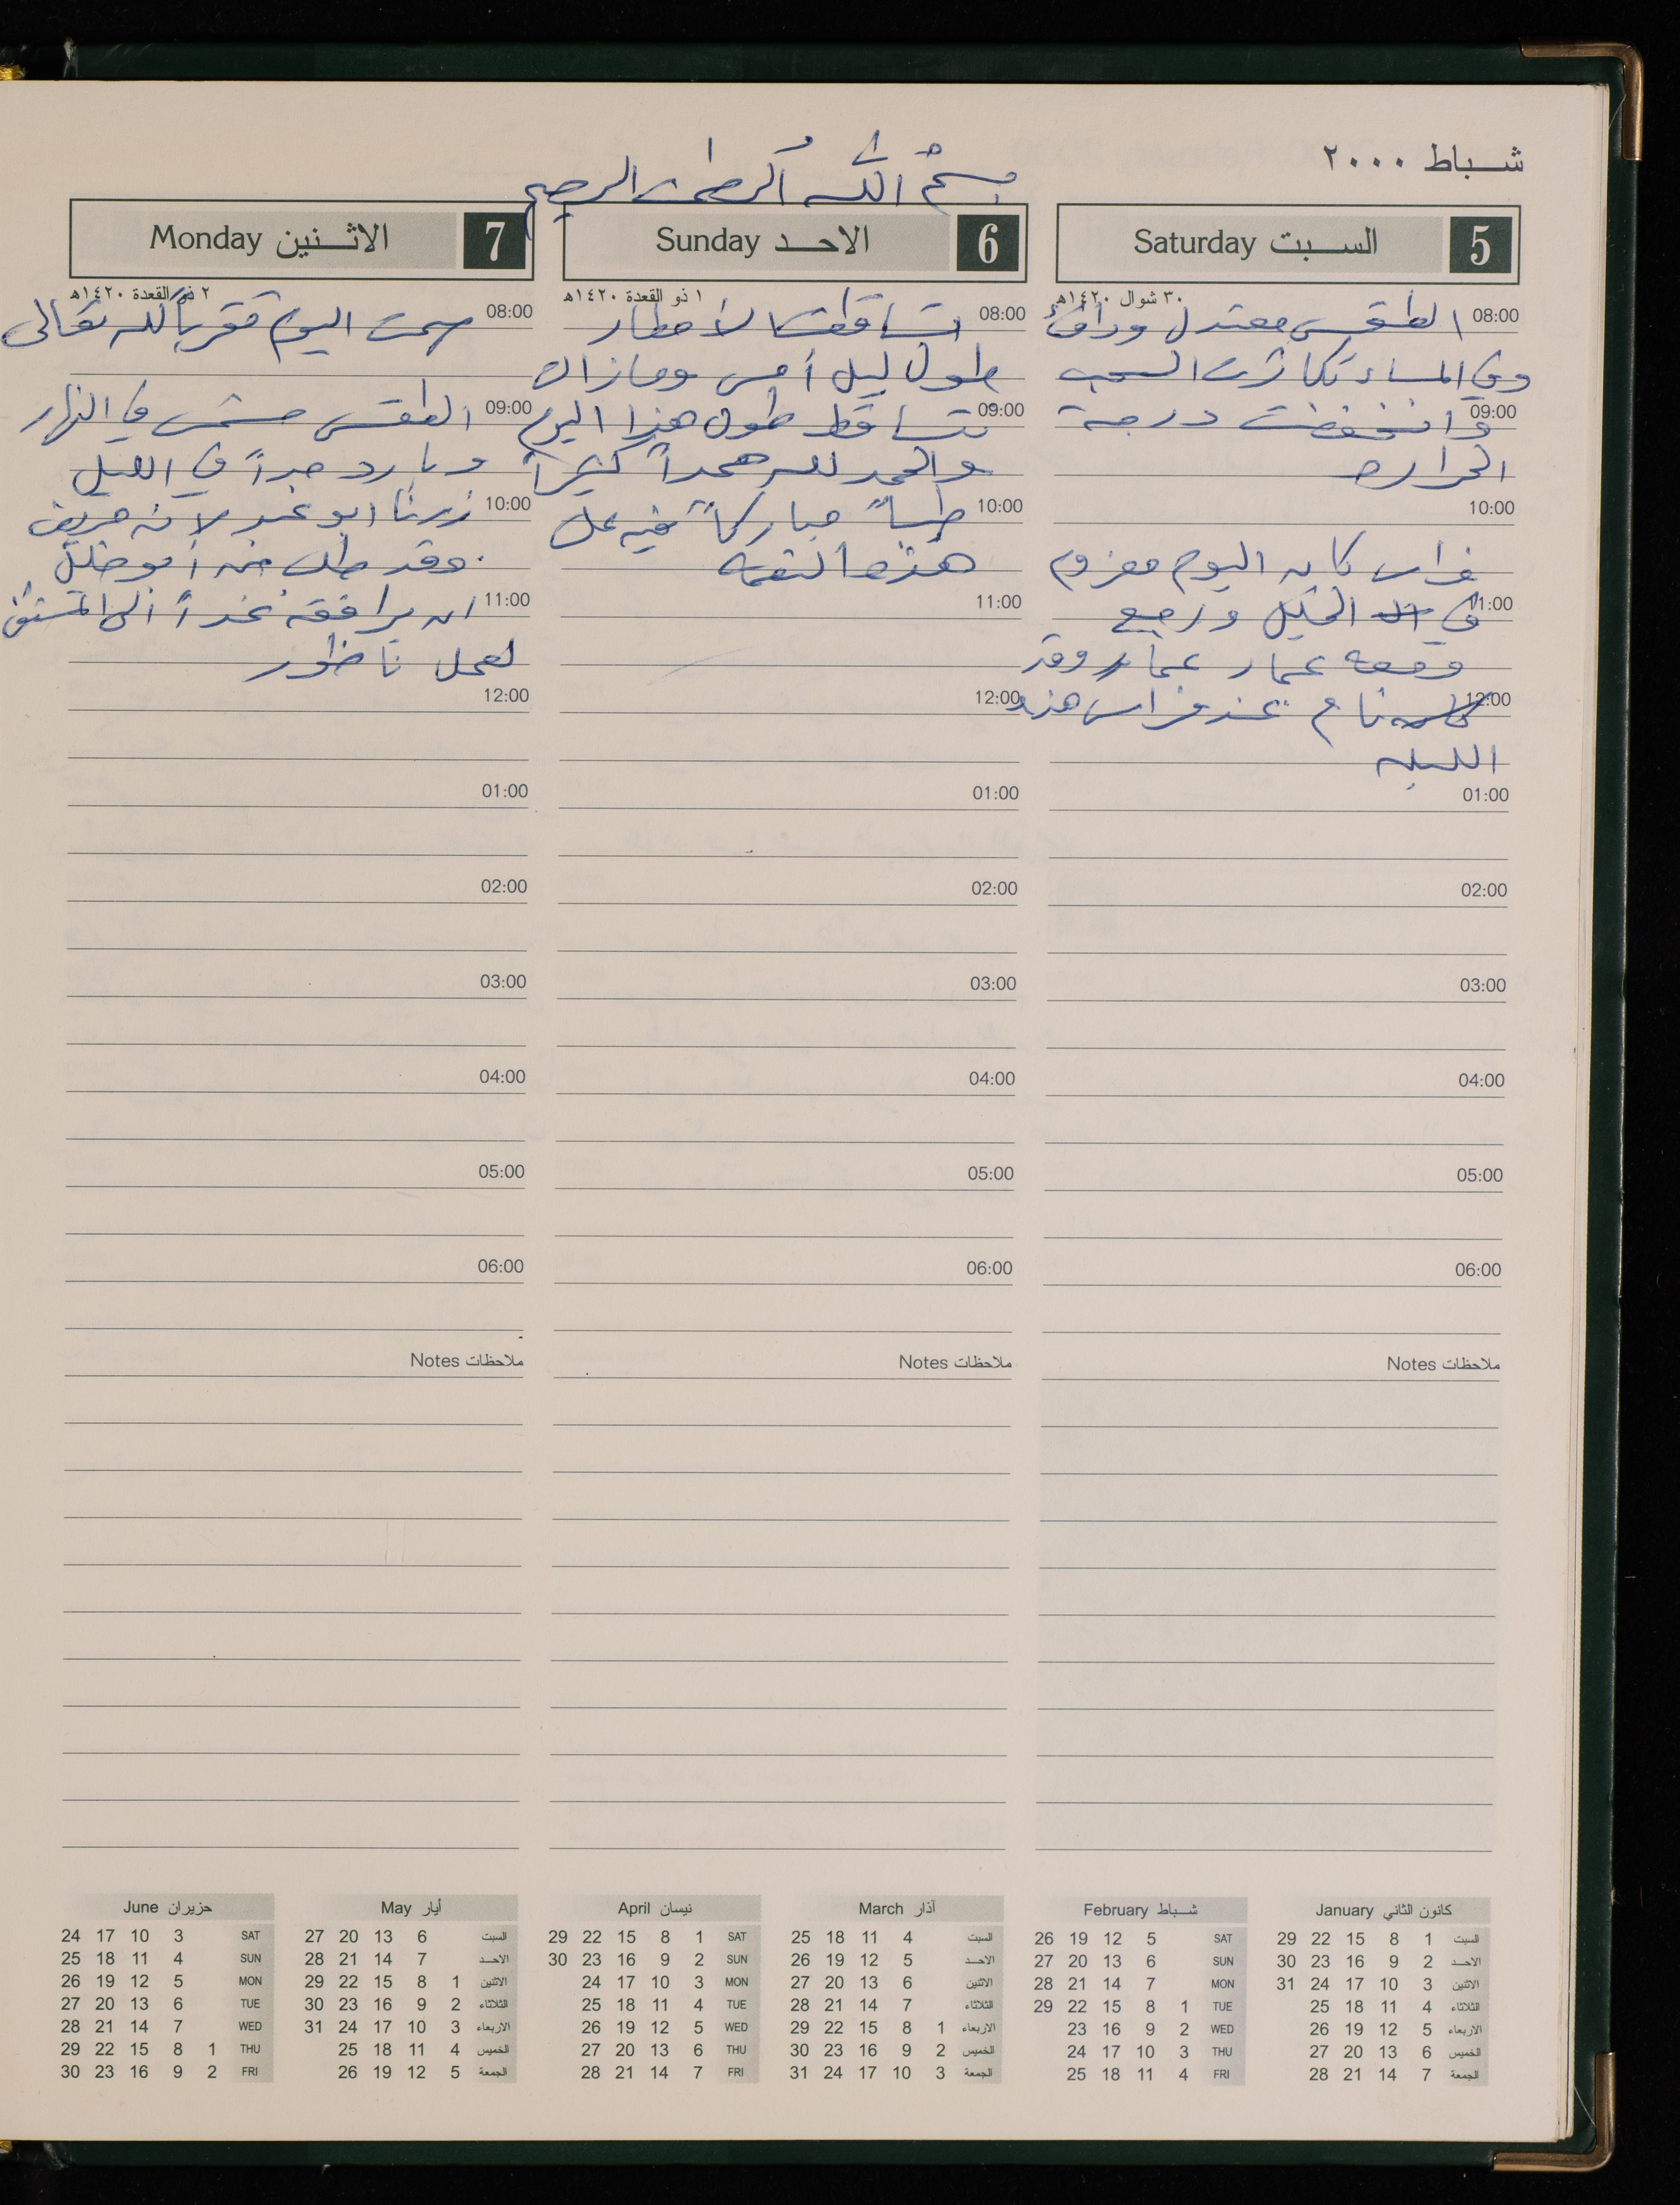 شباط ٢٠٠٠
بسم الله الرحمن الرحيم
5 السبت Saturday
٣٠ شوال ١٤٢٠هـ
08:00 الطقس معتدل ودافئ
وفي المساء تكاثرت السحب
09:00 وانخفضت درجة
الحراره
10:00
فراس كان اليوم معزوم
11:00 في الخليل ورجع
ومعه عمار عمار وقد
12:00 نام عند فراس هذه
الليله
01:00
02:00
03:00
04:00
05:00
06:00
ملاحظات Notes
6 الاحد Sunday
١ ذو القعدة ١٤٢٠هـ
08:00 تساقطت الأمطار
طول ليل أمس ومازالت
09:00 تتساقط طول هذا اليوم
والحمد لله حمداً كثيراً
10:00 طيباً مباركاً فيه على
هذه النعمه
11:00
12:00
01:00
02:00
03:00
04:00
05:00
06:00
ملاحظات Notes
7 الاثنين Monday
٢ ذو القعدة ١٤٢٠هـ
08:00 صمت اليوم تقرباً لله تعالى
09:00 الطقس مشمس في النهار
وبارد جداً في الليل
10:00 زرنا ابو لانه مريض
وقد طلب منه أبو خليل
11:00 ان يرافقه غداً الى المستشفى
لعمل ناظور
12:00
01:00
02:00
03:00
04:00
05:00
06:00
ملاحظات Notes
كانون الثاني January
السبت 1 8 15 22 29
الاحد 2 9 16 23 30
الاثنين 3 10 17 24 31
الثلاثاء 4 11 18 25
الاربعاء 5 12 19 26
الخميس 6 13 20 27
الجمعة 7 14 21 28
شباط February
SAT 5 12 19 26
SUN 6 13 20 27
MON 7 14 21 28
TUE 1 8 15 22 29
WED 2 9 16 23
THU 3 10 17 24
FRI 4 11 18 25
آذار March
السبت 4 11 18 25
الاحد 5 12 19 26
الاثنين 6 13 20 27
الثلاثاء 7 14 21 28
الاربعاء 1 8 15 22 29
الخميس 2 9 16 23 30
الجمعة 3 10 17 24 31
نيسان April
SAT 1 8 15 22 29
SUN 2 9 16 23 30
MON 3 10 17 24
TUE 4 11 18 25
WED 5 12 19 26
THU 6 13 20 27
FRI 7 14 21 28
أيار May
السبت 6 13 20 27
الاحد 7 14 21 28
الاثنين 1 8 15 22 29
الثلاثاء 2 9 16 23 30
الاربعاء 3 10 17 24 31
الخميس 4 11 18 25
الجمعة 5 12 19 26
حزيران June
SAT 3 10 17 24
SUN 4 11 18 25
MON 5 12 19 26
TUE 6 13 20 27
WED 7 14 21 28
THU 1 8 15 22 29
FRI 2 9 16 23 30